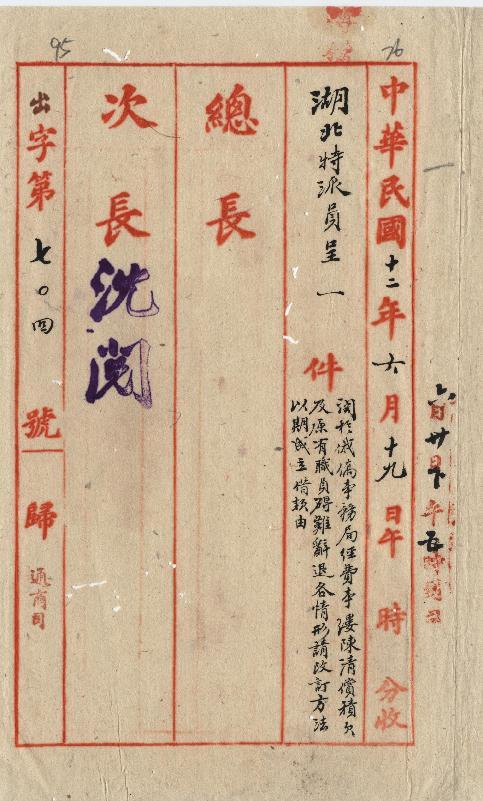 95
76
六月廿日下午五時到司
中華民國十二年六月十九日午 時 分收
湖北特派員呈一件
関於俄僑事務局經費事縷陳清償積欠
及原有職員碍難辭退各情形請改訂方法
以期成立借款由
總長
次長
沈閱
出字第七〇四號歸
通商司